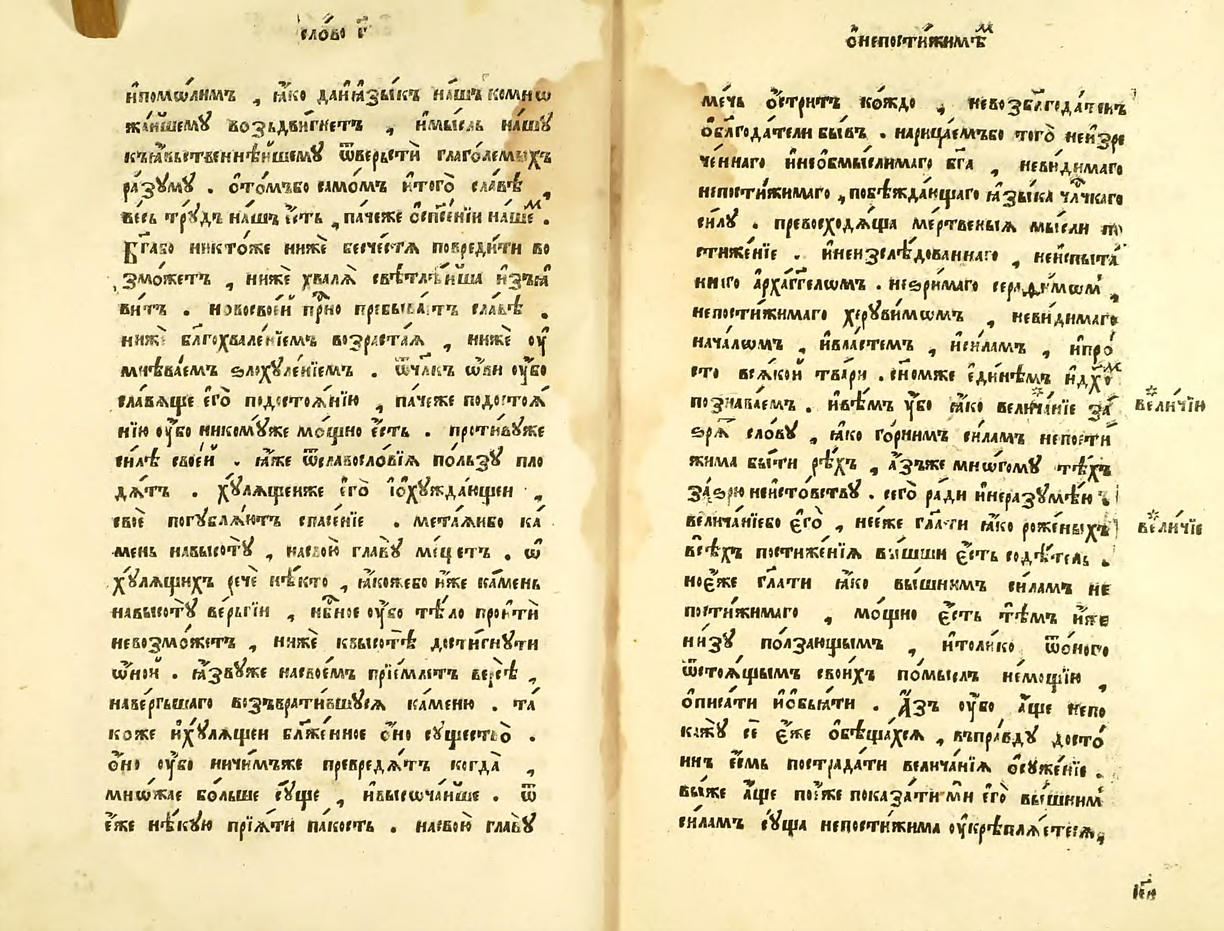 сло́во г҃
и҆помо́лимъ , ꙗ҆́ко да и҆ ꙗ҆зы́къ на́шъ комнѡ
жа́йшемꙋ воз̾дви́гнетъ , и҆мы́сль на́шꙋ
къꙗ҆́вьственнѣ́йшемꙋ ѿве́рьсти глаго́лемыхъ
ра́зꙋмꙋ . ѻ҆то́мъбо само́мъ и҆того̀ сла́вѣ ,
ве́сь трꙋ́дъ на́шъ є҆́сть , па́чеже ѻ҆спⷭ҇е́нїи на́шеⷨ .
Бг҃або никто́же нижѐ бесче́стѧ повреди́ти во
змо́жетъ , нижѐ хвалѧ̀ свѣтлѣ́йша и҆з̾ꙗ
ви́тъ . новосвое́й при́сно пребыва́етъ сла́вѣ .
нижѐ бл҃гохвале́нїемъ возраста́ѧ , нижѐ ᲂу҆
мнѣва́емъ ѕлохꙋле́нїемъ . ѿчл҃къ ѡ҆́ви ᲂу҆́бо
сла́вѧще є҆го̀ подостоѧ́нїю , па́чеже подостоѧ́
нїю ᲂу҆́бо никомꙋ́же мо́щно є҆́сть . проти́вꙋже
си́лѣ свое́й . ꙗ҆́же ѿславосло́вїѧ по́льзꙋ пло
дѧ́тъ . хꙋ́лѧщеиже є҆го̀ и҆ѻ҆хꙋжда́ющеи ,
своѐ погꙋблѧ́ютъ спасе́нїе . мета́ѧибо ка́
мень навысотꙋ̀ , насвою̀ главꙋ̀ ме́щетъ . ѡ҆
хꙋ́лѧщихъ речѐ нѣ́кто , ꙗ҆́кожебо и҆́же ка́мень
навысотꙋ̀ ве́рьгїи , нбⷭ҇ное ᲂу҆́бо тѣ́ло про́йти̑
невозмо́жетъ , нижѐ квысотѣ̀ дости́гнꙋти
ѡ҆́ной . ꙗ҆́звꙋже насвое́мъ прїе́млетъ версѣ̀ ,
наве́ргьшаго возъврати́вшꙋсѧ ка́меню . та́
коже и҆хꙋ́лѧщеи бл҃же́нное ѻ҆́но сꙋщество̀ .
ѻ҆́но ᲂу҆́бо ничи́мъже превредѧ́тъ когда̀ ,
мнѡ́жае бо́льше сꙋ́ще , и҆высоча́йше . ѿ
є҆́же нѣ́кꙋю прїѧ́ти па́кость . насвою̀ главꙋ̀
ѻ҆непости́жимѣⷨ
ме́чь ѻ҆́стритъ ко́ждо , невозбл҃года́тенъ
ѻ҆бл҃года́тели бы́въ . нарица́емъбо того̀ неизре
че́ннаго и҆неѻ҆бмы́слимаго бг҃а , неви́димаго
непости́жимаго , побѣжда́ющаго ꙗ҆зы́ка чл҃ч́каго
си́лꙋ . превосходѧ́ща ме́ртвеныѧ мы́сли по
стиже́нїе . и҆неизслѣ́дованнаго , неиспы́та
ннаго а҆рха́гг҃елѡмъ . неѕри́маго серафи́мѡм ,
непости́жимаго херꙋви́мѡмъ , неви́димаго
нача́лѡмъ , и҆власте́мъ , и҆си́ламъ , и҆про́
сто всѧ́кой тва́ри . сн҃омже є҆ди́нѣмъ и҆дх҃оⷨ
познава́емъ . и҆вѣ́мъ ᲂу҆́бо ꙗ҆́ко велича́нїе за́
ѕрѧ́ сло́вꙋ , ꙗ҆́ко го́рнимъ си́ламъ непости
жима бы́ти рѣ́хъ , а҆́зъже мно́гомꙋ тѣ́хъ
за́ѕрю неи́стовствꙋ . сего̀ ра́ди и҆неразꙋмѣ́ю
велича́нїебо є҆го̀ , нее́же гл҃ати ꙗ҆́ко роже́ныхъ
всѣ́хъ постиже́нїѧ вы́шши є҆́сть содѣ́тель .
ное́же гл҃ати ꙗ҆́ко вы́шнимъ си́ламъ не
пости́жимаго , мо́щно є҆́сть тѣ́мъ и҆́же
ни́зꙋ по́лзающымъ , и҆толи́ко ѿѻ́ного
ѿстоѧ́щымъ свои́хъ по́мыслъ не́мощїю ,
ѻ҆писа́ти и҆ѻ҆б̾ѧ́ти . А҆́зъ ᲂу҆́бо а҆́ще непо
кажꙋ̀ се̑ є҆́же ѻ҆бѣща́хсѧ , въпра́вдꙋ досто́
инъ є҆́смь пострада́ти велича́нїѧ ѻ҆сꙋже́нїе .
вы́же а҆́ще по́зже показа́ти ми̑ є҆го̀ вы́шним
си́ламъ сꙋ́ща непости́жима ᲂу҆крѣплѧ́етесѧ ,
вели́чїю
вели́чїе